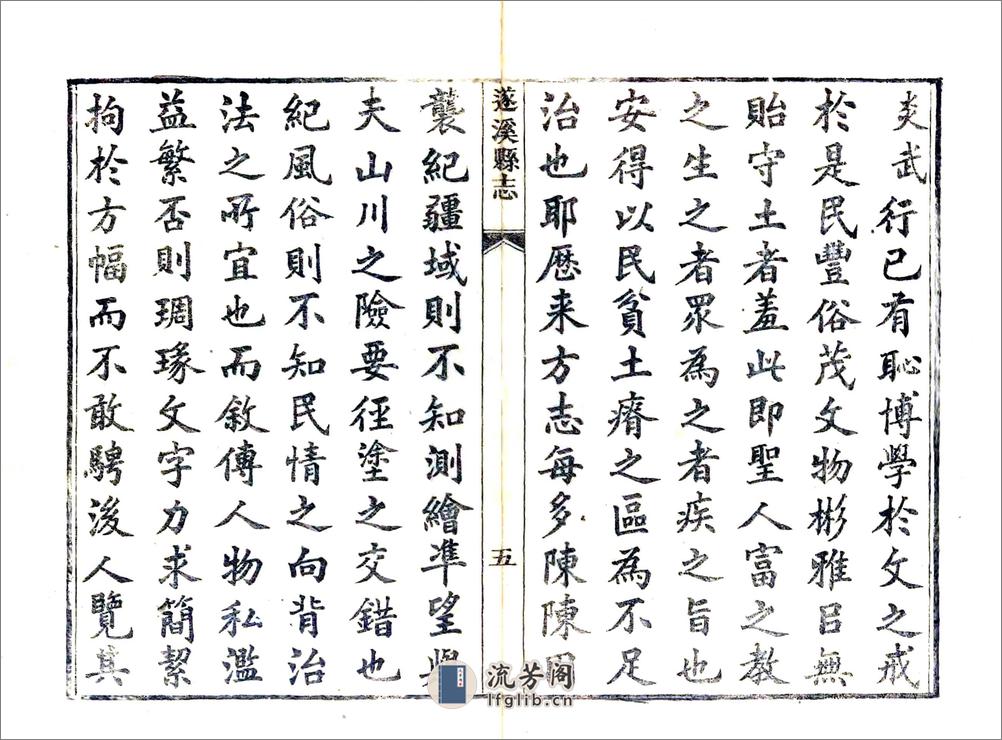 炎武行己有恥博學於文之戒
於是民豐俗茂文物彬雅吕無
貽守土者羞此即聖人富之教
之生之者眾為之者疾之旨也
安得以民貧土瘠之區為不足
治也耶歴来方志每多陳陳
遂溪縣志
五
襲紀疆域則不知測繪凖望與
夫山川之險要徑塗之交錯也
紀風俗則不知民情之向背治
法之所宜也而敘傳人物私濫
益繁否則琱瑑文字力求簡絜
拘於方幅而不敢騁後人覽其
流芳阁
lfglib.cn